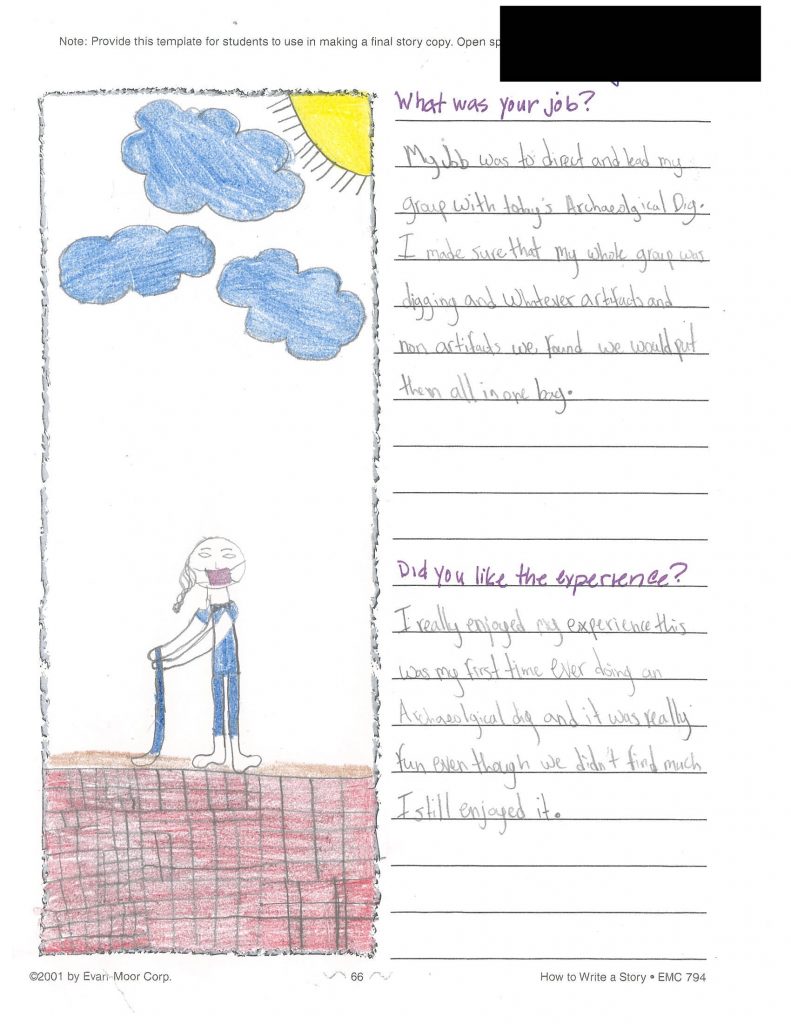 Note: Provide this template for students to use in making a final story copy. Open sp
What was your job?
My job was to direct and lead my
group with today's Archaeolgical Dig.
I made sure that my whole group was
digging and whatever artifacts and
non artifacts we found we would put
them all in one bag.
Did you like the experience?
I really enjoyed my experience this
was my first time ever doing an
Archaeolgical dig and it was really
fun even though we didn't find much
I still enjoyed it.
©2001 by Evan-Moor Corp.
66
How to Write a Story • EMC 794